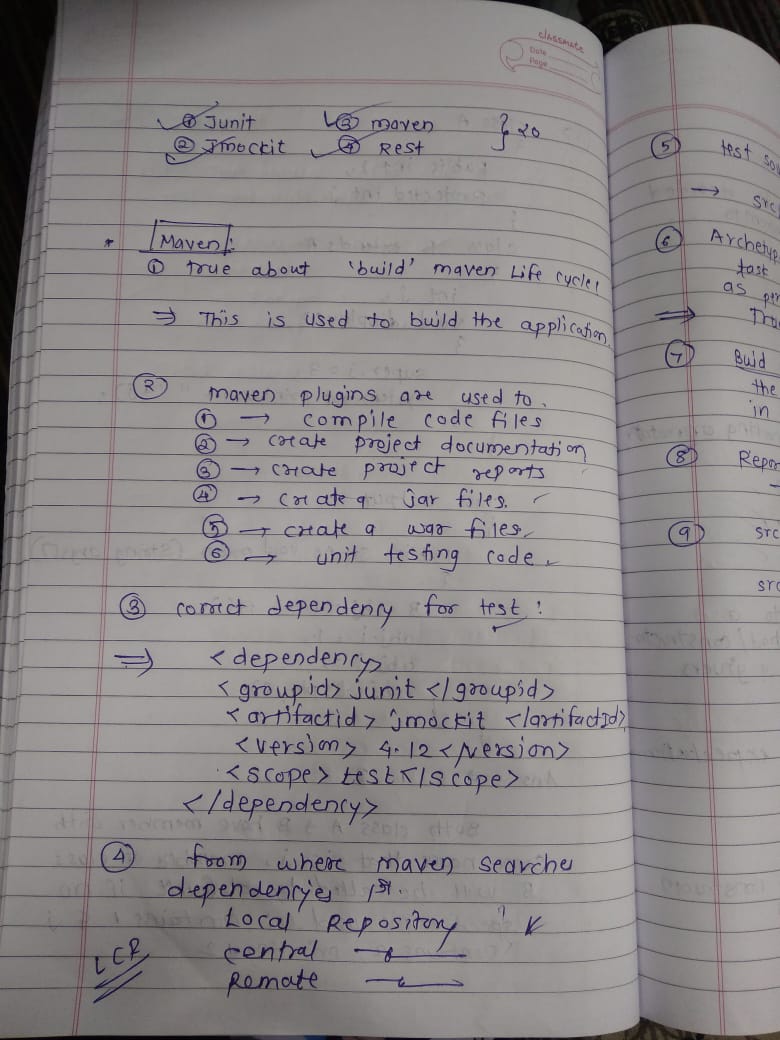 classmate
Date
Page
① Junit ③ maven } 20
② Jmockit ④ Rest
* Maven :
① true about 'build' maven Life cycle!
⇒ This is used to build the application.
② maven plugins are used to.
① → compile code files
② → create project documentation
③ → create project reports
④ → create a jar files.
⑤ → create a war files.
⑥ → unit testing code.
③ correct dependency for test :
⇒ <dependency>
<groupid> junit </groupid>
<artifactid> jmockit </artifactId>
<version> 4.12 </version>
<scope> test </scope>
</dependency>
④ from where maven searches
dependencies 1st.
Local Repository
LCR central
Remote
⑤ test sou
→ src
⑥ Archetyp
task
as per
⇒ Tru
⑦ Build
the
in
⑧ Repor
⑨ src
src